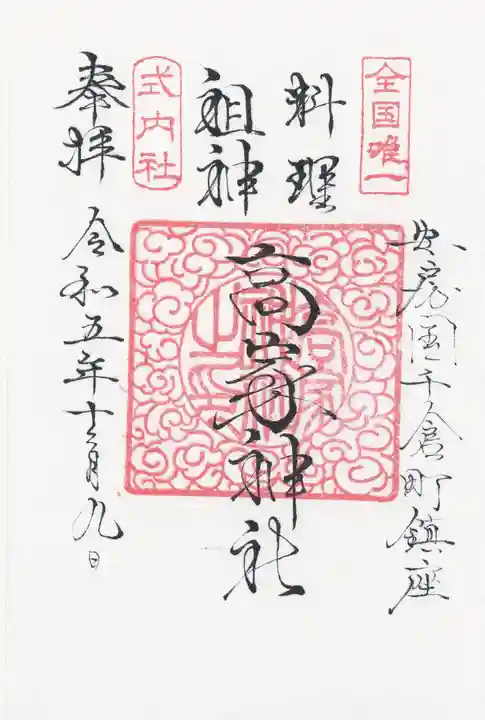 全国唯一
安房国千倉町鎮座
料理
祖神
高家神社
式内社
奉拝
令和五年十二月九日